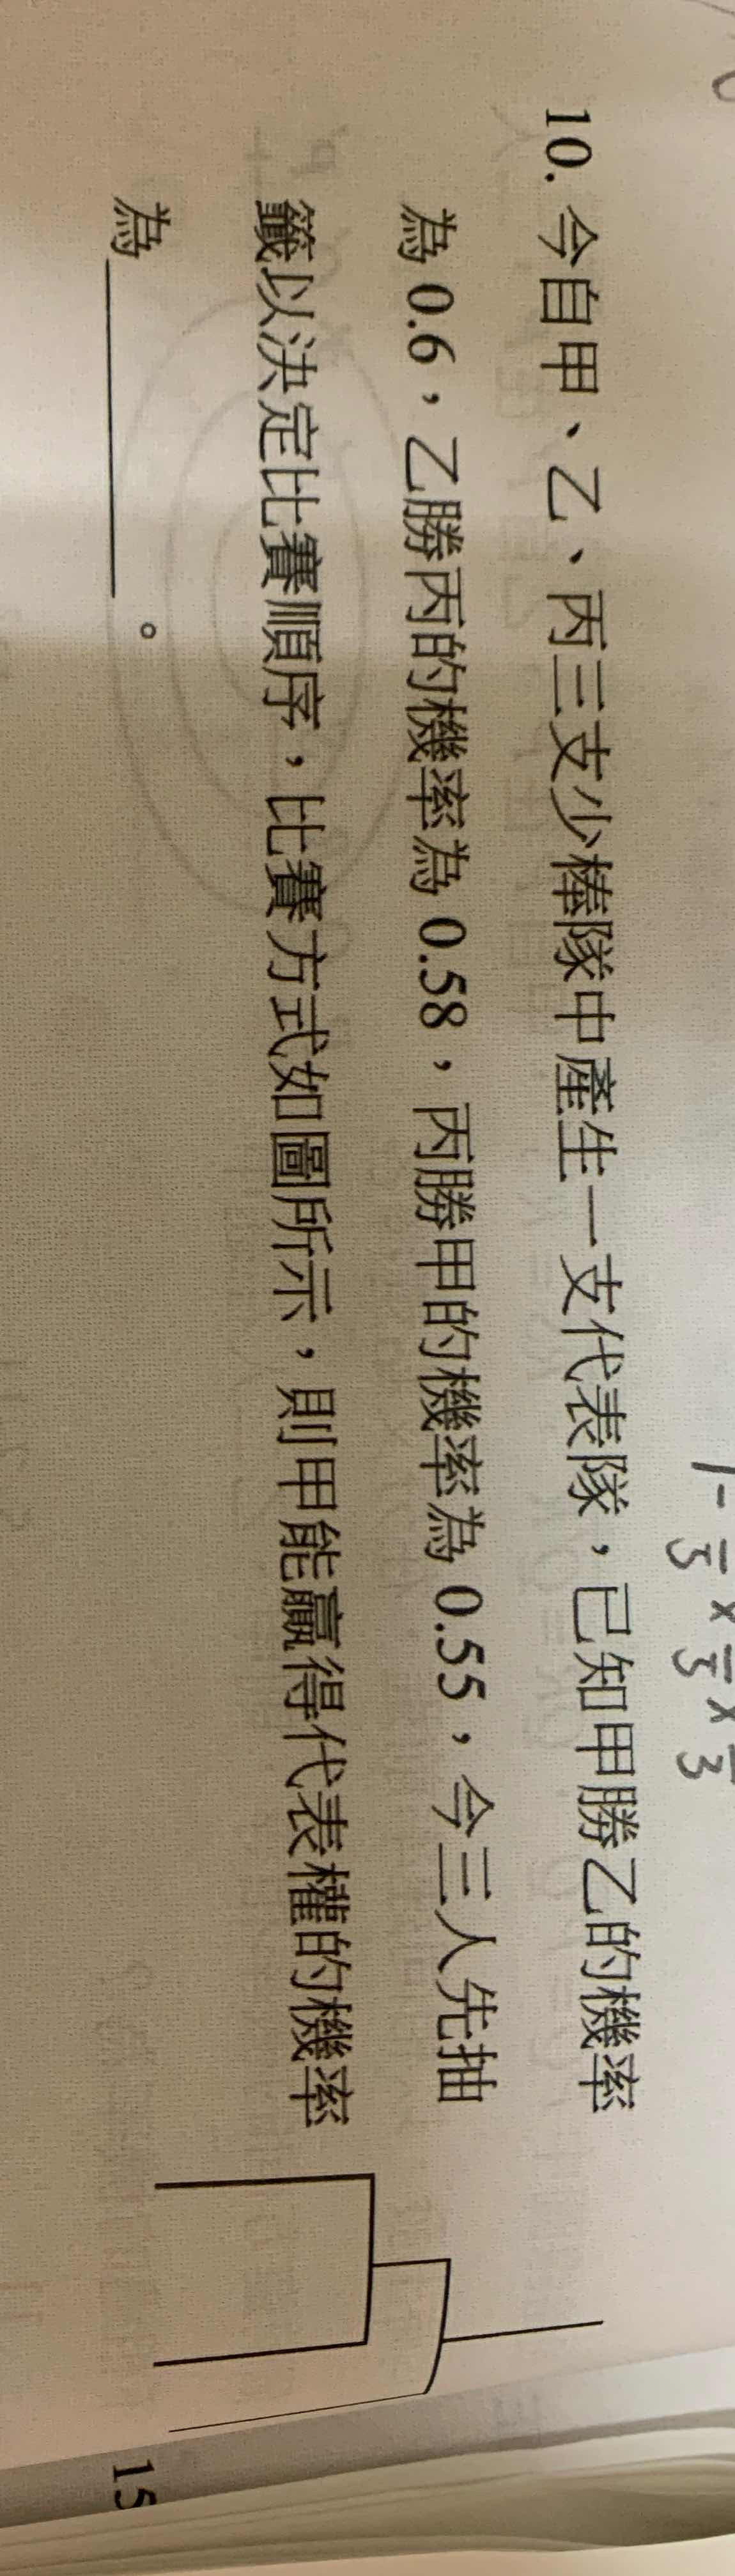 10. 今自甲、乙、丙三支少棒隊中產生一支代表隊，已知甲勝乙的機率
為 0.6，乙勝丙的機率為 0.58，丙勝甲的機率為 0.55，今三人先抽
籤以決定比賽順序，比賽方式如圖所示，則甲能贏得代表權的機率
為＿＿＿＿。
15